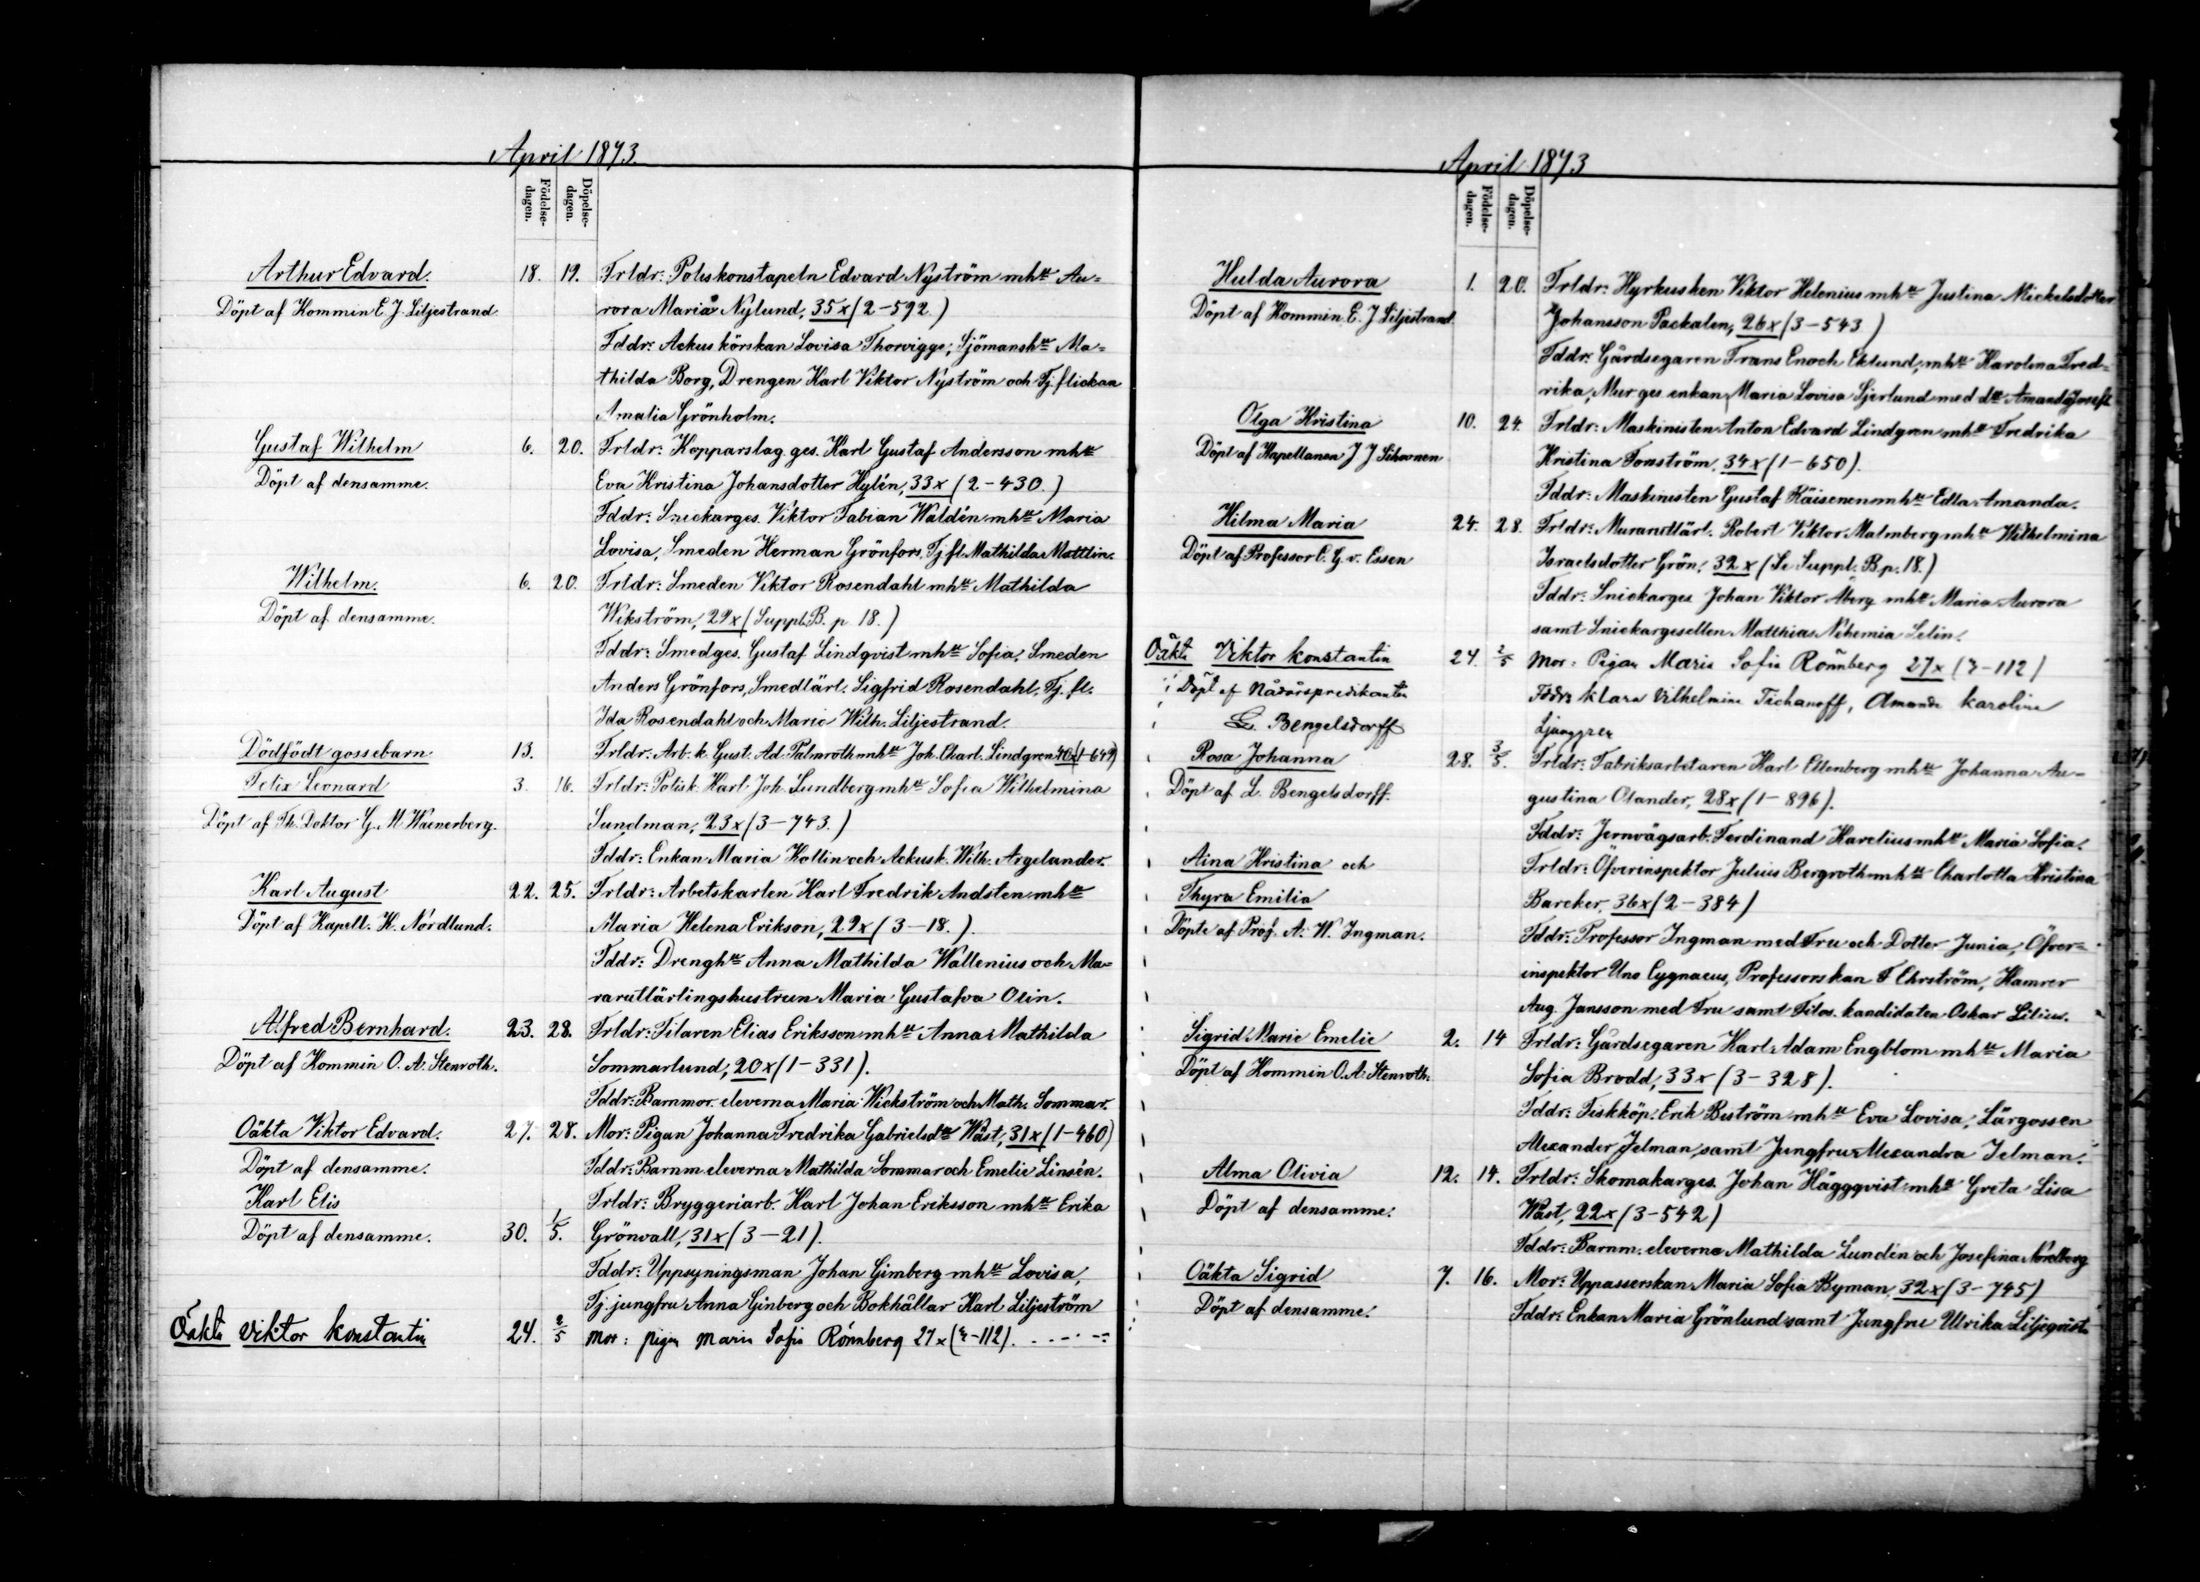 April 1873.
Födelse-dagen.
Döpelse-dagen.
Arthur Edvard. 18. 19. Frldr: Poliskonstapeln Edvard Nyström mhu Au-
Döpt af Kommin E. J. Liljestrand. rora Maria Nylund, 35x (2-592)
Fddr: Ackuskörskan Lovisa Thorvigge, Sjömansh:u Ma-
thilda Borg, Drengen Karl Viktor Nyström och Tj. flickan
Amalia Grönholm.
Gustaf Wilhelm 6. 20. Frldr: Kopparslag. ges. Karl Gustaf Andersson mhu
Döpt af densamme. Eva Kristina Johansdotter Hylén, 33x (2-430.)
Fddr: Snickarges. Viktor Fabian Waldén mhu Maria
Lovisa, Smeden Herman Grönfors, Tj. fl. Mathilda Mattlin.
Wilhelm. 6. 20. Frldr: Smeden Viktor Rosendahl mhu Mathilda
Döpt af densamme. Wikström, 29x (Suppl. B. p. 18.)
Fddr: Smedges. Gustaf Lindqvist mhu Sofia, Smeden
Anders Grönfors, Smedlärl. Sigfrid Rosendahl, Tj. fl.
Ida Rosendahl och Maria Wilh. Liljestrand.
Dödfödt gossebarn 13. Frldr: Arb. k. Gust. Ad. Palmroth mhu Joh. Charl. Lindgren 40x (1-649)
Felix Leonard 3. 16. Frldr: Polisk. Karl Joh. Lundberg mhu Sofia Wilhelmina
Döpt af Th. Doktor G. M. Waenerberg. Sundman, 23x (3-743.)
Fddr: Enkan Maria Kollin och Ackusk. Wilh. Argelander.
Karl August 22. 25. Frldr: Arbetskarlen Karl Fredrik Andsten mhu
Döpt af Kapell. K. Nordlund. Maria Helena Erikson, 29x (3-18.).
Fddr: Drenghu Anna Mathilda Wallenius och Ma-
rarutlärlingshustrun Maria Gustafva Olin.
Alfred Bernhard. 23. 28. Frldr: Filaren Elias Eriksson mhu Anna Mathilda
Döpt af Kommin O. A. Stenroth. Sommarlund, 20x (1-331).
Fddr: Barnmor. eleverna Maria Wickström och Math. Sommar.
Oäkta Viktor Edvard. 27. 28. Mor: Pigan Johanna Fredrika Gabrielsdr Wäst, 31x (1-460)
Döpt af densamme. Fddr: Barnm. eleverna Mathilda Sommar och Emelie Linsén.
Karl Elis Frldr: Bryggeriarb. Karl Johan Eriksson mhu Erika
Döpt af densamme. 30. 1/5. Grönvall, 31x (3-21).
Fddr: Uppsyningsman Johan Gimberg mhu Lovisa,
Tj. jungfru Anna Ginberg och Bokhållar Karl Liljeström
Oäkta Viktor Konstantin 24. 2/5 Mor: pigan Maria Sofia Rönnberg 27x (3-112). - - - - -
April 1873
Födelse-dagen.
Döpelse-dagen.
Hulda Aurora 1. 20. Frldr: Hyrkusken Viktor Helenius mhu Justina Mickelsdotter
Döpt af Kommin. E. J. Liljestrand Johansson Packalen, 26x (3-543)
Fddr: Gårdsegaren Frans Enoch Eklund, mhu Karolina Fred-
rika, Mur. ges. enkan Maria Lovisa Sjerlund med dr Amanda Josefi.
Olga Kristina 10. 24. Frldr: Maskinisten Anton Edvard Lindgren mhu Fredrika
Döpt af Kapellanen J J Sihvonen Kristina Fomström, 34x (1-650).
Fddr: Maskinisten Gustaf Räisenen mhu Edla Amanda.
Hilma Maria 24. 28. Frldr: Murarutlärl. Robert Viktor Malmberg mhu Wilhelmina
Döpt af Professor C. G. v. Essen Israelsdotter Grön, 32x (Se Suppl. B. p. 18.)
Fddr: Snickarges. Johan Viktor Åberg mhu Maria Aurora
samt Snickargesellen Matthias Nehemia Selin.
Oäkta Viktor Konstantin 24. 2/5 Mor: Pigan Maria Sofia Rönnberg 27x (3-112)
Döpt af Nådårspredikanten Fddr: Klara Vilhelmina Tichanoff, Amanda Karolina
L. Bengelsdorff Ljunggren
Rosa Johanna 28. 3/5. Frldr: Fabriksarbetaren Karl Ellenberg mhu Johanna Au-
Döpt af L. Bengelsdorff. gustina Olander, 28x (1-896).
Fddr: Jernvägsarb. Ferdinand Harelius mhu Maria Sofia.
Aina Kristina och Frldr: Öfverinspektor Julius Bergroth mhu Charlotta Kristina
Thyra Emilia Barcker, 36x (2-384)
Döpte af Prof. A. W. Ingman. Fddr: Professor Ingman med Fru och Dotter Junia, Öfver-
inspektor Uno Cygnaeus, Professorskan F. Ehrström, Kamrer
Aug. Jansson med Fru samt Filos. kandidaten Oskar Lilius.
Sigrid Marie Emelie 2. 14 Frldr: Gårdsegaren Karl Adam Engblom mhu Maria
Döpt af Kommin O. A. Stenroth. Sofia Brodd, 33x (3-328).
Fddr: Fiskköp. Erik Biström mhu Eva Lovisa, Lärgossen
Alexander Jelman, samt Jungfru Alexandra Jelman.
Alma Olivia 12. 14. Frldr: Skomakarges. Johan Häggqvist mhu Greta Lisa
Döpt af densamme. Wäst, 22x (3-542)
Fddr: Barnm. eleverna Mathilda Lundén och Josefina Nordberg
Oäkta Sigrid 7. 16. Mor: Uppasserskan Maria Sofia Byman, 32x (3-745)
Döpt af densamme. Fddr: Enkan Maria Grönlund samt Jungfru Ulrika Liljeqvist